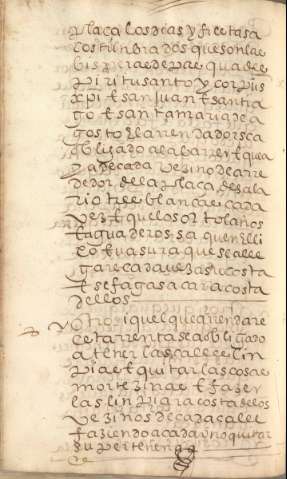 plaça los dias y fiestas a
costunbrados que son la e
bispera de pascua de e
spiritu santo y corpus
xpi e san juan e santia
go e santa maria de a
gosto el arrendador sea
obligado a la barrer e que a
ya de cada vezino de arre
dedor de la plaça de sala
rio tres blancas cada
vez e que los ortolanos
e aguaderos saquen el
e vasura que se alle
gare cada vez a su costa
e se faga sacar a costa
dellos
otrosi quel que arrendare
esta renta sea obligado
a tener las calles lin
pias e quitar las cosas
mortezinas e fazer
las linpiar a costa de los
vezinos de cada calle
faziendo a cada uno quitar
su pertenen